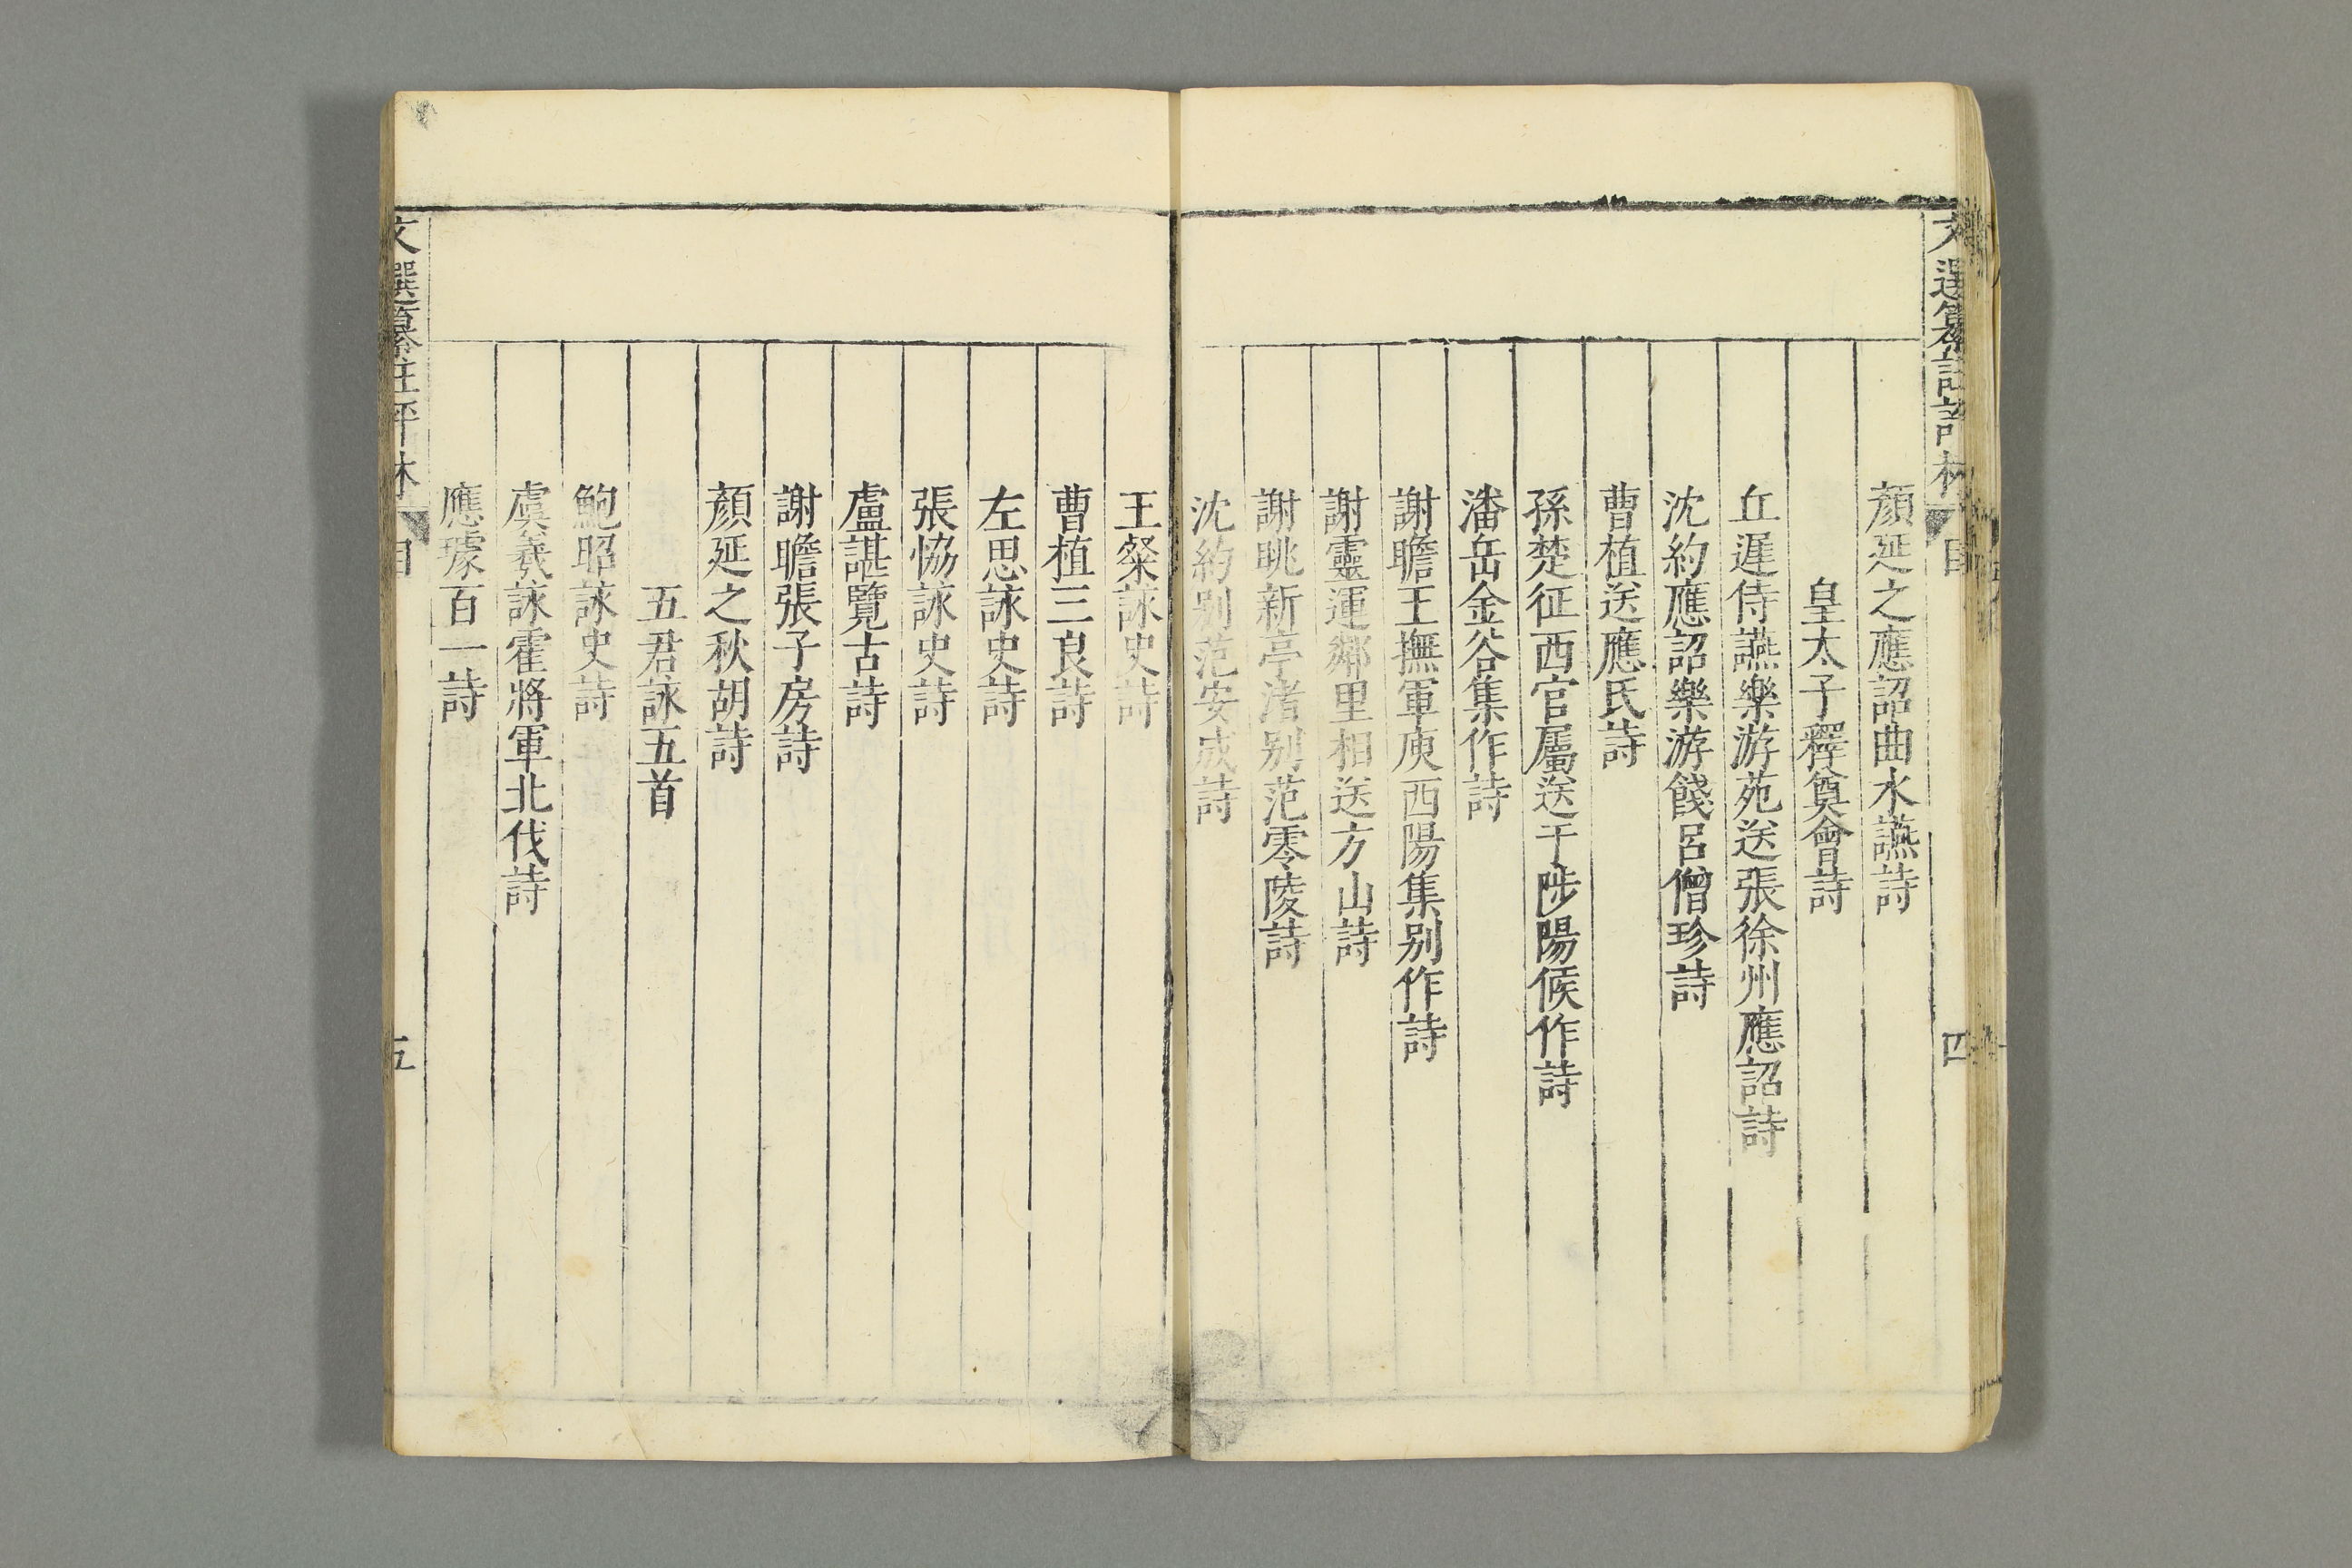 文選纂註評林 目 四
顔延之應詔曲水讌詩
皇太子釋奠會詩
丘遲侍讌樂游苑送張徐州應詔詩
沈約應詔樂游餞呂僧珍詩
曹植送應氏詩
孫楚征西官屬送于陟陽候作詩
潘岳金谷集作詩
謝瞻王撫軍庾西陽集别作詩
謝靈運鄰里相送方山詩
謝眺新亭渚别范零陵詩
沈約别范安成詩
王粲詠史詩
曹植三良詩
左思詠史詩
張恊詠史詩
盧諶覽古詩
謝瞻張子房詩
顔延之秋胡詩
五君詠五首
鮑昭詠史詩
虞羲詠霍將軍北伐詩
應璩百一詩
文選纂註評林 目 五